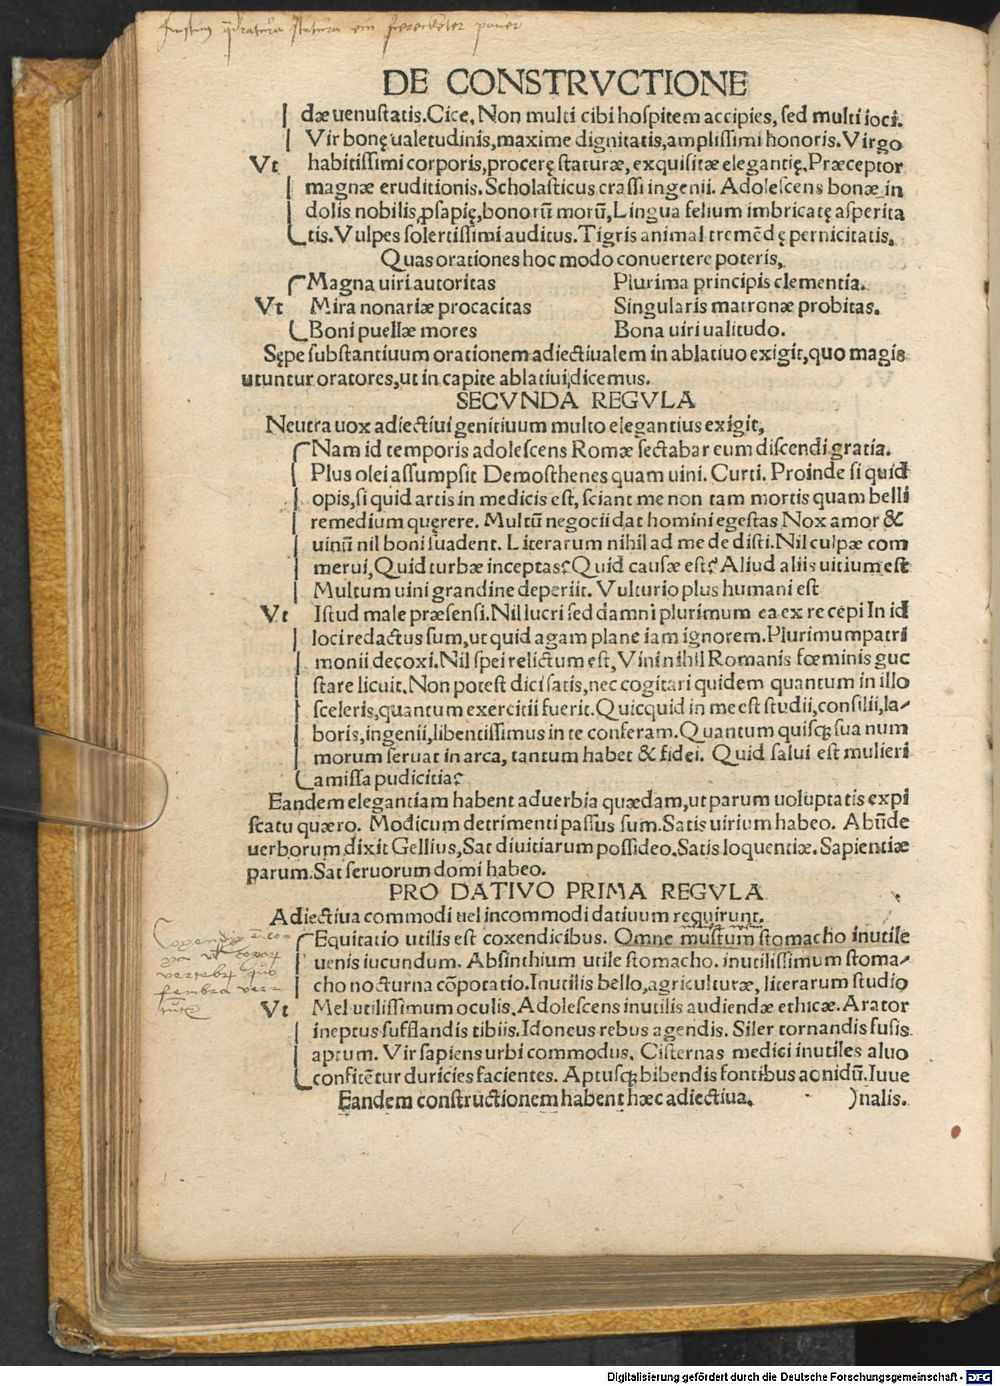 DE CONSTRVCTIONE
dæ uenustatis. Cice. Non multi cibi hospitem accipies, sed multi ioci.
Vir bonę ualetudinis, maxime dignitatis, amplissimi honoris. Virgo
Vt habitissimi corporis, procerę staturæ, exquisitæ elegantię. Præceptor
magnæ eruditionis. Scholasticus crassi ingenii. Adolescens bonæ in
dolis nobilis, ꝓsapię, bonorū morū, Lingua felium imbricatę asperita
tis. Vulpes solertissimi auditus. Tigris animal tremēdę pernicitatis.
Quas orationes hoc modo conuertere poteris,
Magna uiri autoritas Plurima principis clementia.
Vt Mira nonariæ procacitas Singularis matronæ probitas.
Boni puellæ mores Bona uiri ualitudo.
Sępe substantiuum orationem adiectiualem in ablatiuo exigit, quo magis
utuntur oratores, ut in capite ablatiui dicemus.
SECVNDA REGVLA
Neutra uox adiectiui genitiuum multo elegantius exigit,
Nam id temporis adolescens Romæ sectabar eum discendi gratia.
Plus olei assumpsit Demosthenes quam uini. Curti. Proinde si quid
opis, si quid artis in medicis est, sciant me non tam mortis quam belli
remedium quęrere. Multū negocii dat homini egestas Nox amor &
uinū nil boni suadent. Literarum nihil ad me dedisti. Nil culpæ com
merui, Quid turbæ inceptas? Quid causæ est? Aliud aliis uitium est
Multum uini grandine deperiit. Vulturio plus humani est
Vt Istud male præsensi. Nil lucri sed damni plurimum ea ex re cepi In id
loci redactus sum, ut quid agam plane iam ignorem. Plurimum patri
monii decoxi. Nil spei relictum est, Vini nihil Romanis fœminis guc
stare licuit. Non potest dici satis, nec cogitari quidem quantum in illo
sceleris, quantum exercitii fuerit. Quicquid in me est studii, consilii, la⸗
boris, ingenii, libentissimus in te conferam. Quantum quisqꝫ sua num
morum seruat in arca, tantum habet & fidei. Quid salui est mulieri
amissa pudicitia?
Eandem elegantiam habent aduerbia quædam, ut parum uoluptatis expi
scatu quæro. Modicum detrimenti passus sum. Satis uirium habeo. Abūde
uerborum dixit Gellius, Sat diuitiarum possideo. Satis loquentiæ. Sapientiæ
parum. Sat seruorum domi habeo.
PRO DATIVO PRIMA REGVLA
Adiectiua commodi uel incommodi datiuum requirunt.
Equitatio utilis est coxendicibus. Omne mustum stomacho inutile
uenis iucundum. Absinthium utile stomacho. inutilissimum stoma⸗
cho nocturna cōpotatio. Inutilis bello, agriculturæ, literarum studio
Vt Mel utilissimum oculis. Adolescens inutilis audiendæ ethicæ. Arator
ineptus sufflandis tibiis. Idoneus rebus agendis. Siler tornandis fusis
aptum. Vir sapiens urbi commodus. Cisternas medici inutiles aluo
confitētur duricies facientes. Aptusqꝫ bibendis fontibus aonidū. Iuue
Eandem constructionem habent hæc adiectiua. )nalis.
Digitalisierung gefördert durch die Deutsche Forschungsgemeinschaft - DFG